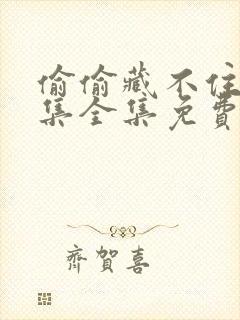 偷偷藏不住
集全集免費
齊賀喜